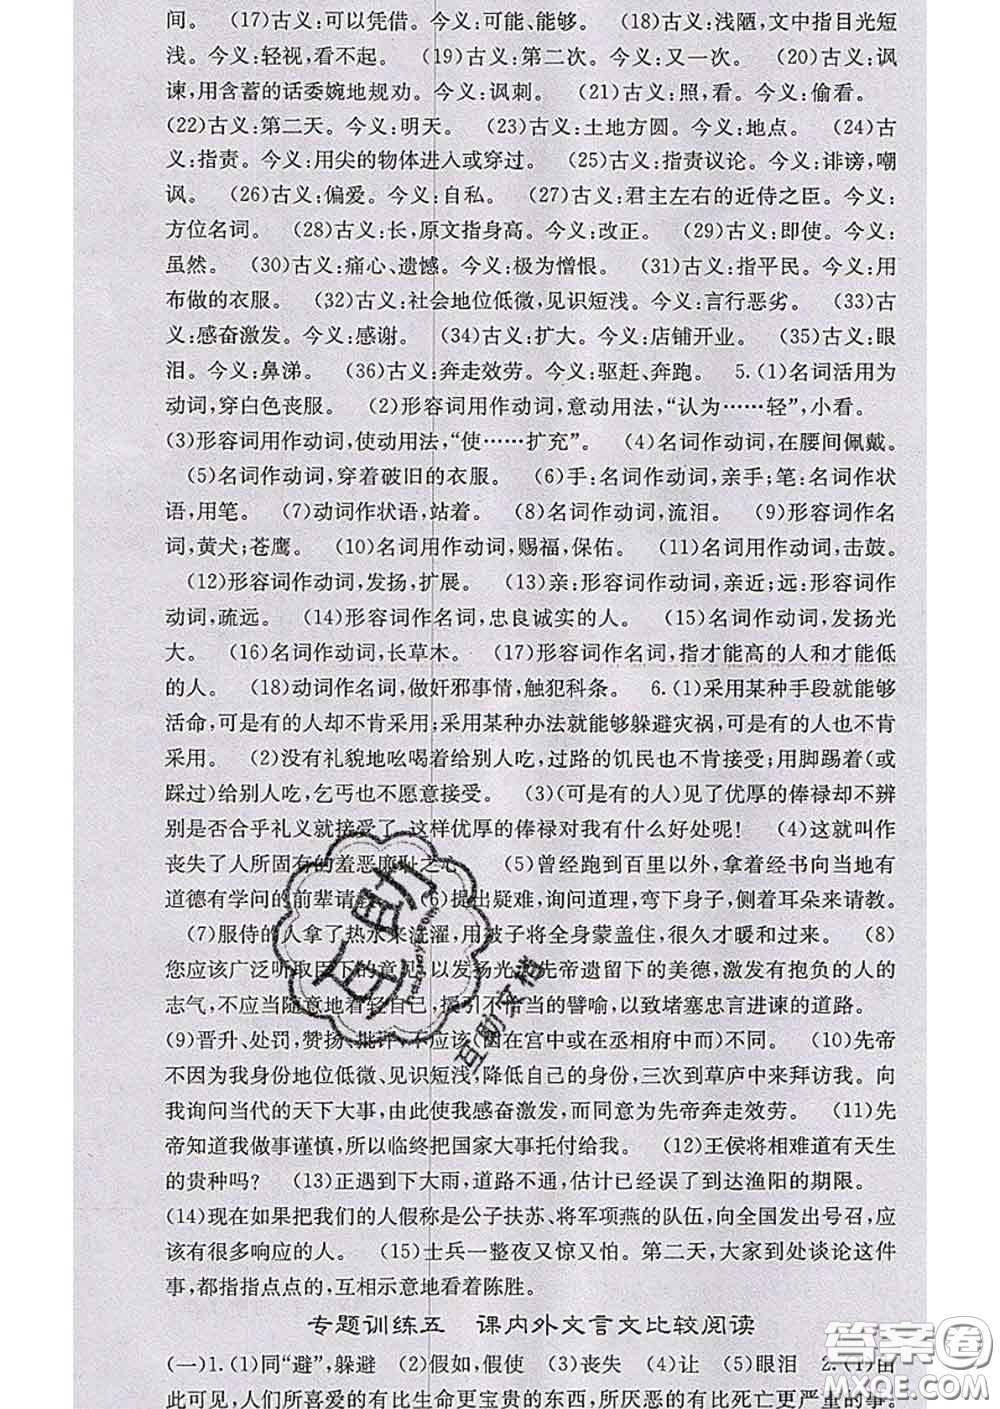 间。 (17)古义:可以凭借。今义:可能、能够。 (18)古义:浅陋,文中指目光短
浅。今义:轻视,看不起。 (19)古义:第二次。今义:又一次。 (20)古义:讽
谏,用含蓄的话委婉地规劝。今义:讽刺。 (21)古义:照,看。今义:偷看。
(22)古义:第二天。今义:明天。 (23)古义:土地方圆。今义:地点。 (24)古
义:指责。今义:用尖的物体进入或穿过。 (25)古义:指责议论。今义:诽谤,嘲
讽。 (26)古义:偏爱。今义:自私。 (27)古义:君主左右的近侍之臣。今义:
方位名词。 (28)古义:长,原文指身高。今义:改正。 (29)古义:即使。今义:
虽然。 (30)古义:痛心、遗憾。今义:极为憎恨。 (31)古义:指平民。今义:用
布做的衣服。 (32)古义:社会地位低微,见识短浅。今义:言行恶劣。 (33)古
义:感奋激发。今义:感谢。 (34)古义:扩大。今义:店铺开业。 (35)古义:眼
泪。今义:鼻涕。 (36)古义:奔走效劳。今义:驱赶、奔跑。 5.(1)名词活用为
动词,穿白色丧服。 (2)形容词用作动词,意动用法,“认为……轻”,小看。
(3)形容词用作动词,使动用法,“使……扩充”。 (4)名词作动词,在腰间佩戴。
(5)名词作动词,穿着破旧的衣服。 (6)手:名词作动词,亲手;笔:名词作状
语,用笔。 (7)动词作状语,站着。 (8)名词作动词,流泪。 (9)形容词作名
词,黄犬;苍鹰。 (10)名词用作动词,赐福,保佑。 (11)名词用作动词,击鼓。
(12)形容词作动词,发扬,扩展。 (13)亲:形容词作动词,亲近;远:形容词作
动词,疏远。 (14)形容词作名词,忠良诚实的人。 (15)名词作动词,发扬光
大。 (16)名词作动词,长草木。 (17)形容词作名词,指才能高的人和才能低
的人。 (18)动词作名词,做奸邪事情,触犯科条。 6.(1)采用某种手段就能够
活命,可是有的人却不肯采用;采用某种办法就能够躲避灾祸,可是有的人也不肯
采用。 (2)没有礼貌地吆喝着给别人吃,过路的饥民也不肯接受;用脚踢着(或
踩过)给别人吃,乞丐也不愿意接受。 (3)(可是有的人)见了优厚的俸禄却不辨
别是否合乎礼义就接受了,这样优厚的俸禄对我有什么好处呢! (4)这就叫作
丧失了人所固有的羞恶廉耻之心。 (5)曾经跑到百里以外,拿着经书向当地有
道德有学问的前辈请教。 (6)提出疑难,询问道理,弯下身子,侧着耳朵来请教。
(7)服侍的人拿了热水来洗濯,用被子将全身蒙盖住,很久才暖和过来。 (8)
您应该广泛听取臣下的意见,以发扬光大先帝遗留下的美德,激发有抱负的人的
志气,不应当随意地看轻自己,援引不恰当的譬喻,以致堵塞忠言进谏的道路。
(9)晋升、处罚,赞扬、批评,不应该(因在宫中或在丞相府中而)不同。 (10)先帝
不因为我身份地位低微、见识短浅,降低自己的身份,三次到草庐中来拜访我。向
我询问当代的天下大事,由此使我感奋激发,而同意为先帝奔走效劳。 (11)先
帝知道我做事谨慎,所以临终把国家大事托付给我。 (12)王侯将相难道有天生
的贵种吗? (13)正遇到下大雨,道路不通,估计已经误了到达渔阳的期限。
(14)现在如果把我们的人假称是公子扶苏、将军项燕的队伍,向全国发出号召,应
该有很多响应的人。 (15)士兵一整夜又惊又怕。第二天,大家到处谈论这件
事,都指指点点的,互相示意地看着陈胜。
专题训练五 课内外文言文比较阅读
(一)1.(1)同“避”,躲避 (2)假如,假使 (3)丧失 (4)让 (5)眼泪 2.(1)由
此可见,人们所喜爱的有比生命更宝贵的东西,所厌恶的有比死亡更严重的事。
互助
互助文档
答案圈
MXQE.COM